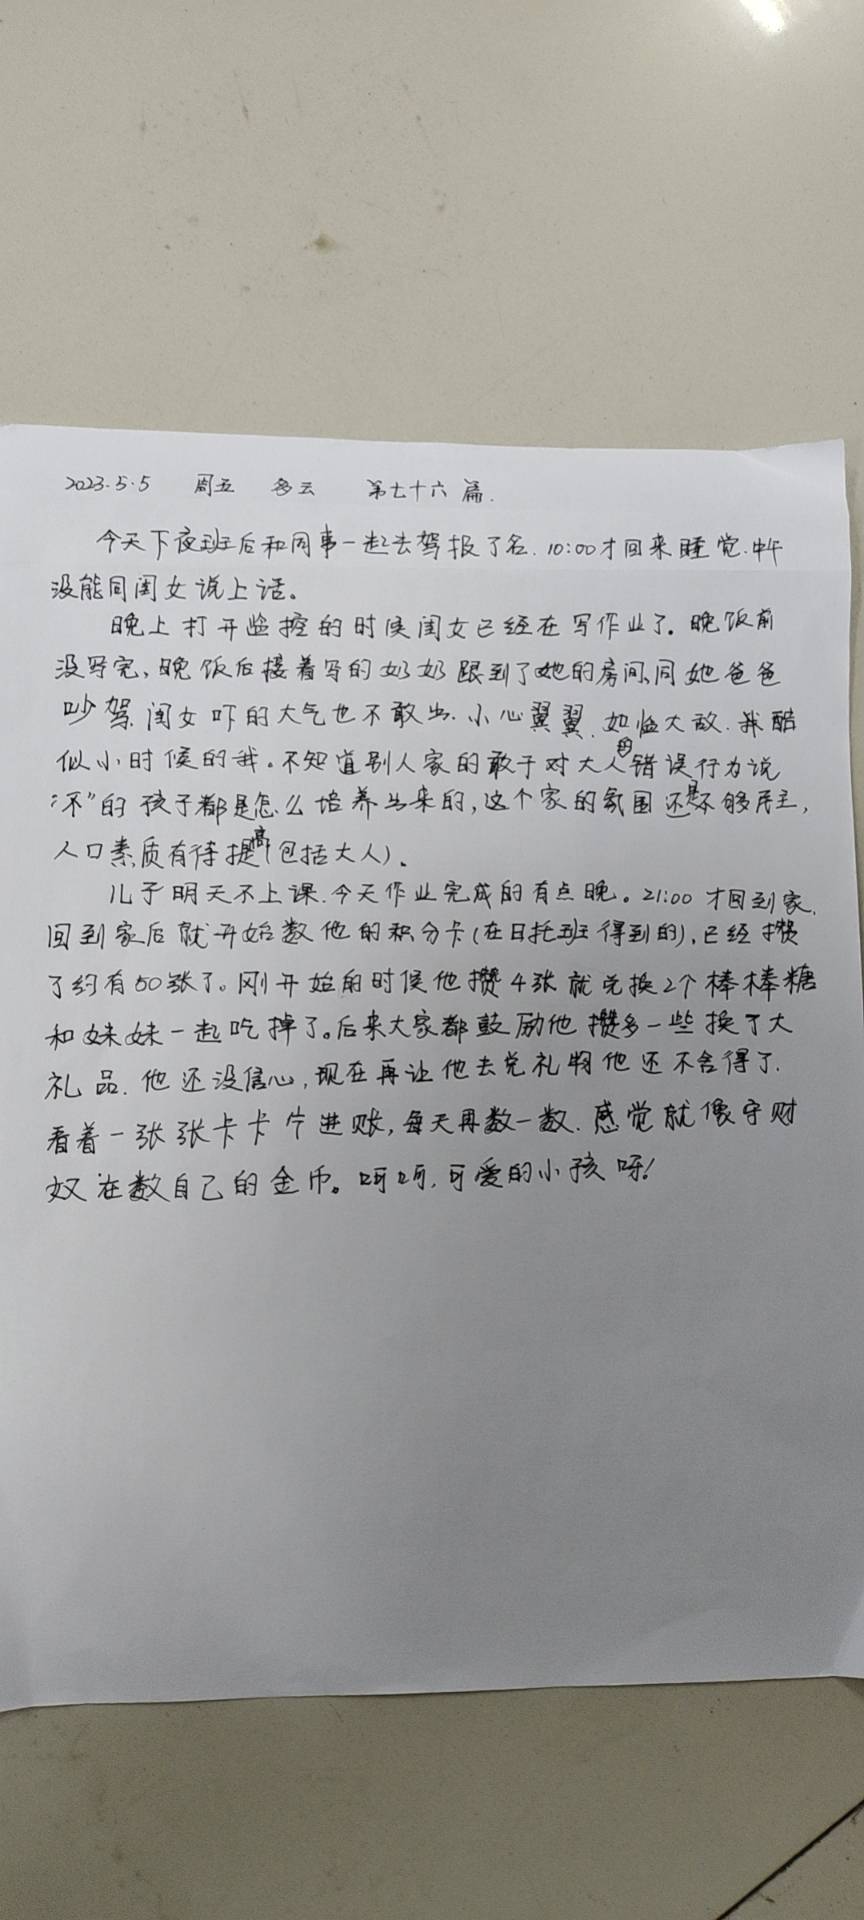 2023.5.5 周五 多云 第七十六篇.
今天下夜班后和同事一起去驾报了名.10:00才回来睡觉.中午
没能同闺女说上话。
晚上打开监控的时候闺女已经在写作业了.晚饭前
没写完,晚饭后接着写的奶奶跟到了她的房间,同她爸爸
吵驾.闺女吓的大气也不敢出.小心翼翼.如临大敌.我酷
似小时候的我。不知道别人家的敢于对大人的错误行为说
“不”的孩子都是怎么培养出来的,这个家的氛围还是不够民主,
人口素质有待提高(包括大人)。
儿子明天不上课.今天作业完成的有点晚。21:00才回到家.
回到家后就开始数他的积分卡(在日托班得到的),已经攒
了约有50张了。刚开始的时候他攒4张就兑换2个棒棒糖
和妹妹一起吃掉了。后来大家都鼓励他攒多一些换个大
礼品.他还没信心,现在再让他去兑礼物他还不舍得了.
看着一张张卡卡片进账,每天再数一数.感觉就像守财
奴在数自己的金币。呵呵,可爱的小孩呀!